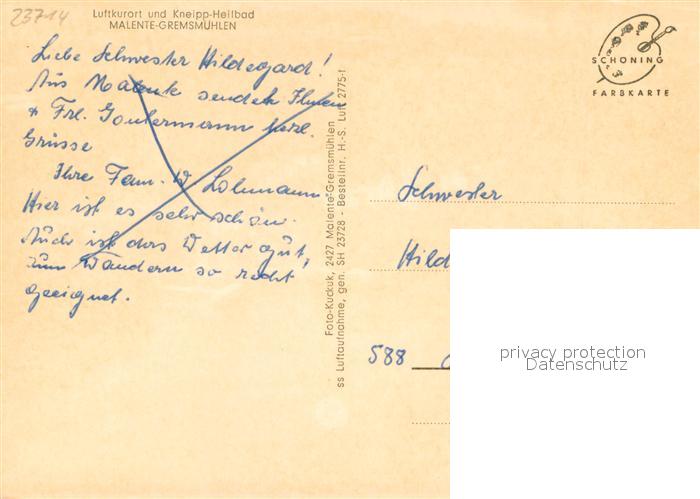 23714
Luftkurort und Kneipp-Heilbad
MALENTE-GREMSMÜHLEN
Liebe Schwester Hildegard!
Aus Malente sendet Ihnen
& Frl. Gontermann herzl.
Grüsse
Ihre Fam. W. Lohmann
Hier ist es sehr schön.
Auch ist das Wetter gut,
zum Wandern so recht
geeignet.
Foto-Kuckuk, 2427 Malente-Gremsmühlen
ss Luftaufnahme, gen. SH 23728 - Bestellnr. H.-S. Luft 2775-f
SCHÖNING
FARBKARTE
Schwester
Hild
588
privacy protection
Datenschutz